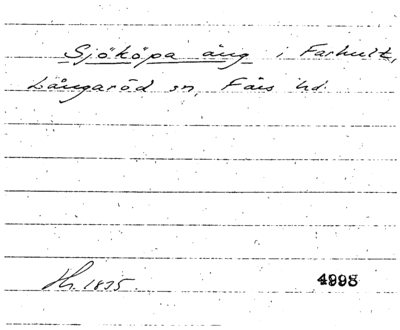 Sjököpa äng i Farhult,
Långaröd sn, Färs hd.
Hn. 1875. 4998